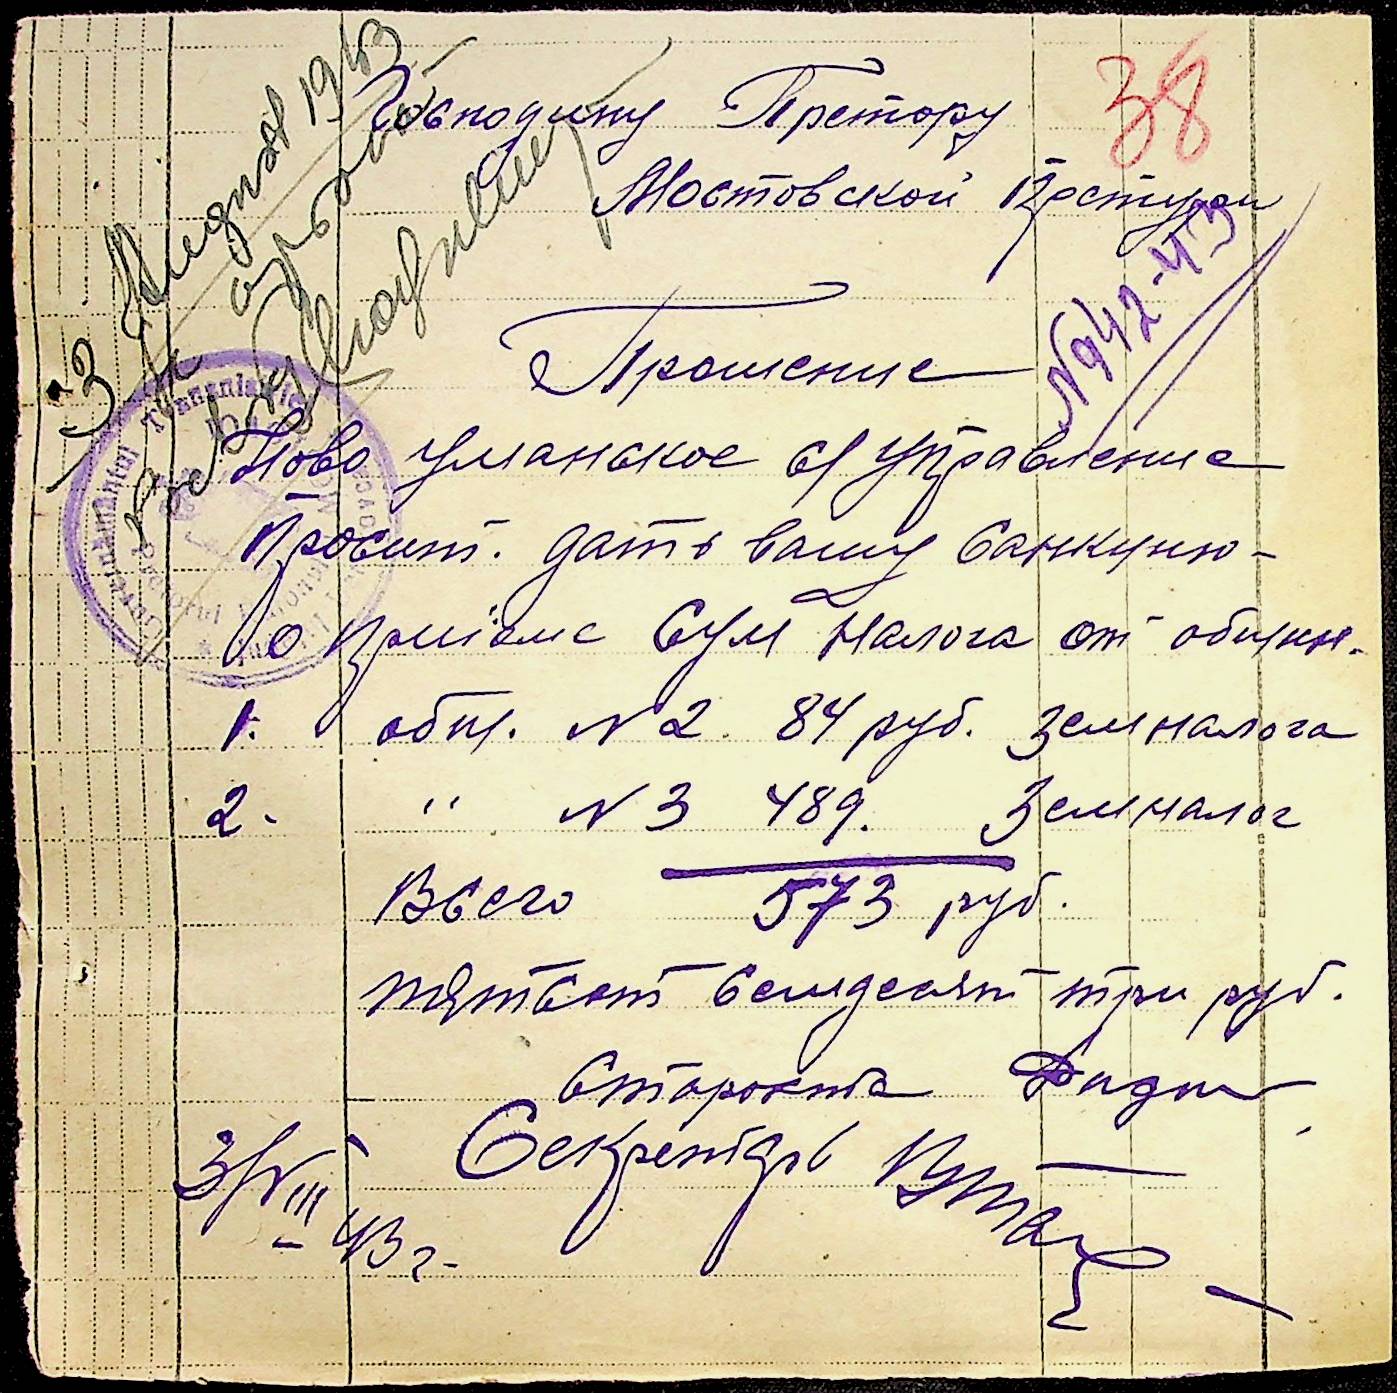 38
3 August 1943
Господину Претору
Мостовской Претури
№942-43
Прошение
Ново Уманское с/управление
Просит. дать вашу санкцию-
о приёме сум налога от общин.
1. общ. №2. 84 руб. Земналога
2. " №3 489. Земналог
Всего 573 руб.
пятсот семдесят три руб.
Старокта
Секретарь
3/VIII 43 г.
Guvernământul Transnistriei